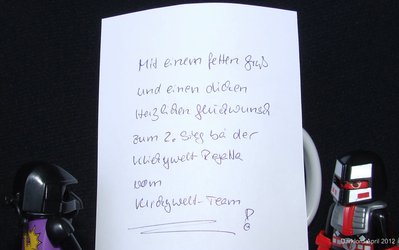 Mit einem fetten Gruß
und einen dicken
Herzlichen Glückwunsch
zum 2. Sieg bei der
Klickywelt-Regatta
vom
Klickywelt-Team
April 2012